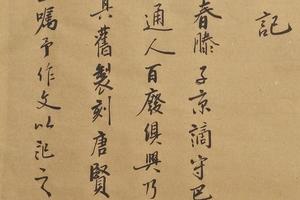 記
春滕子京謫守巴
通人百廢俱興乃
具舊製刻唐賢
嘱予作文以記之